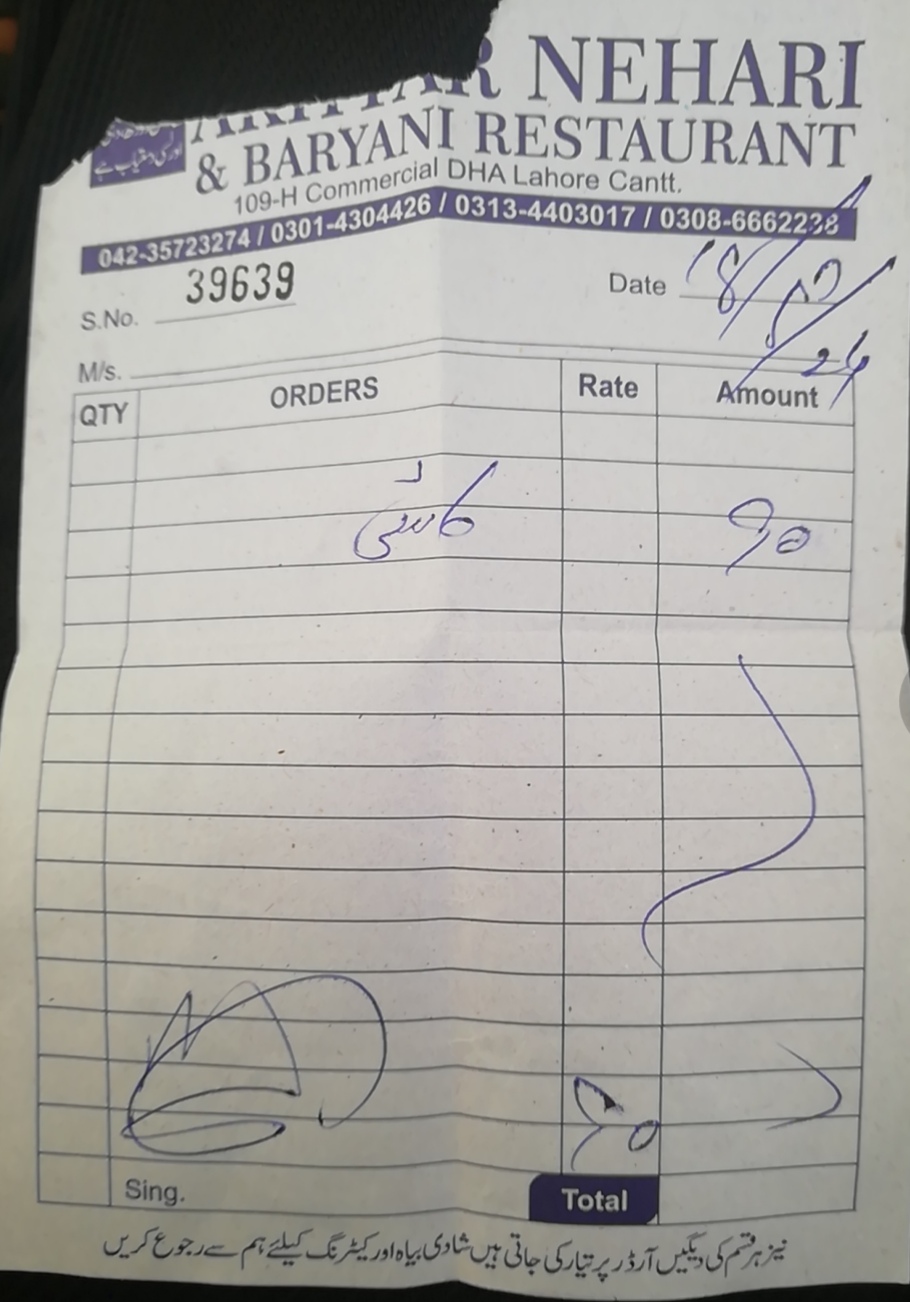 NEHARI
& BARYANI RESTAURANT
109-H Commercial DHA Lahore Cantt.
042-35723274 / 0301-4304426 / 0313-4403017 / 0308-6662238
S.No. 39639
Date 18/
24
M/s.
QTY ORDERS Rate Amount
90
Sing.
Total
نیز ہر قسم کی دیگیں آرڈر پر تیار کی جاتی ہیں شادی بیاہ اور کیٹرنگ کیلئے ہم سے رجوع کریں